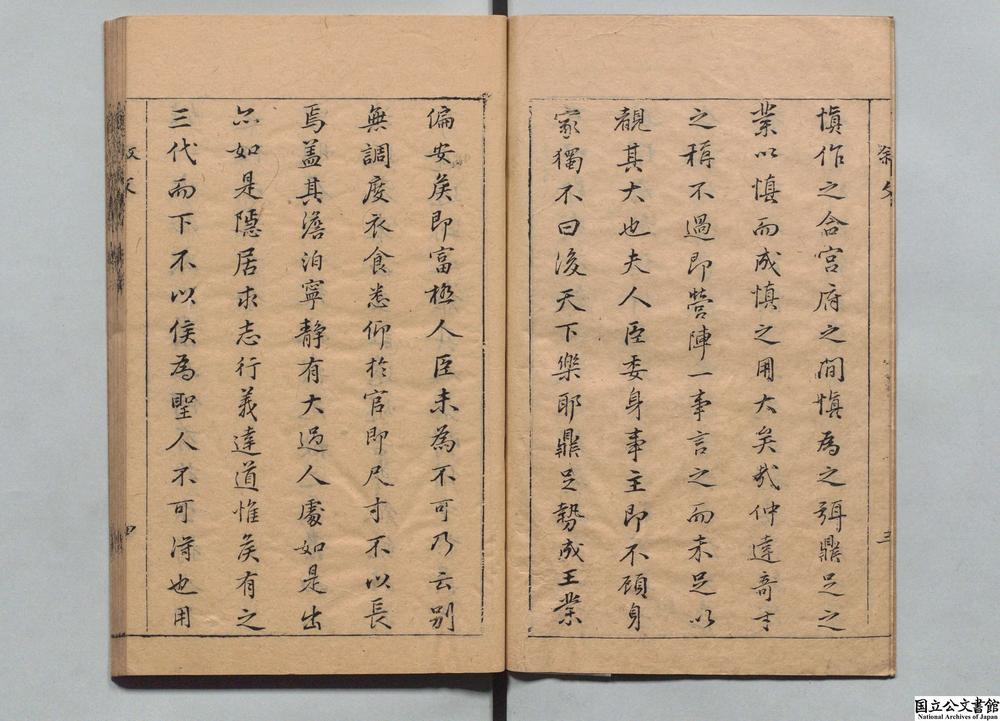 慎作之合宮府之間慎為之弭鼎足之
業以慎而成慎之用大矣哉仲達奇才
之稱不過即營陣一事言之而未足以
覩其大也夫人臣委身事主即不顧身
家獨不曰後天下樂耶鼎足勢成王業
偏安矦即富極人臣未為不可乃云别
無調度衣食悉仰於官即尺寸不以長
焉盖其澹泊寧静有大過人處如是出
亦如是隱居求志行義達道惟矦有之
三代而下不以侯為聖人不可得也用
叙文
三
四
国立公文書館
National Archives of Japan